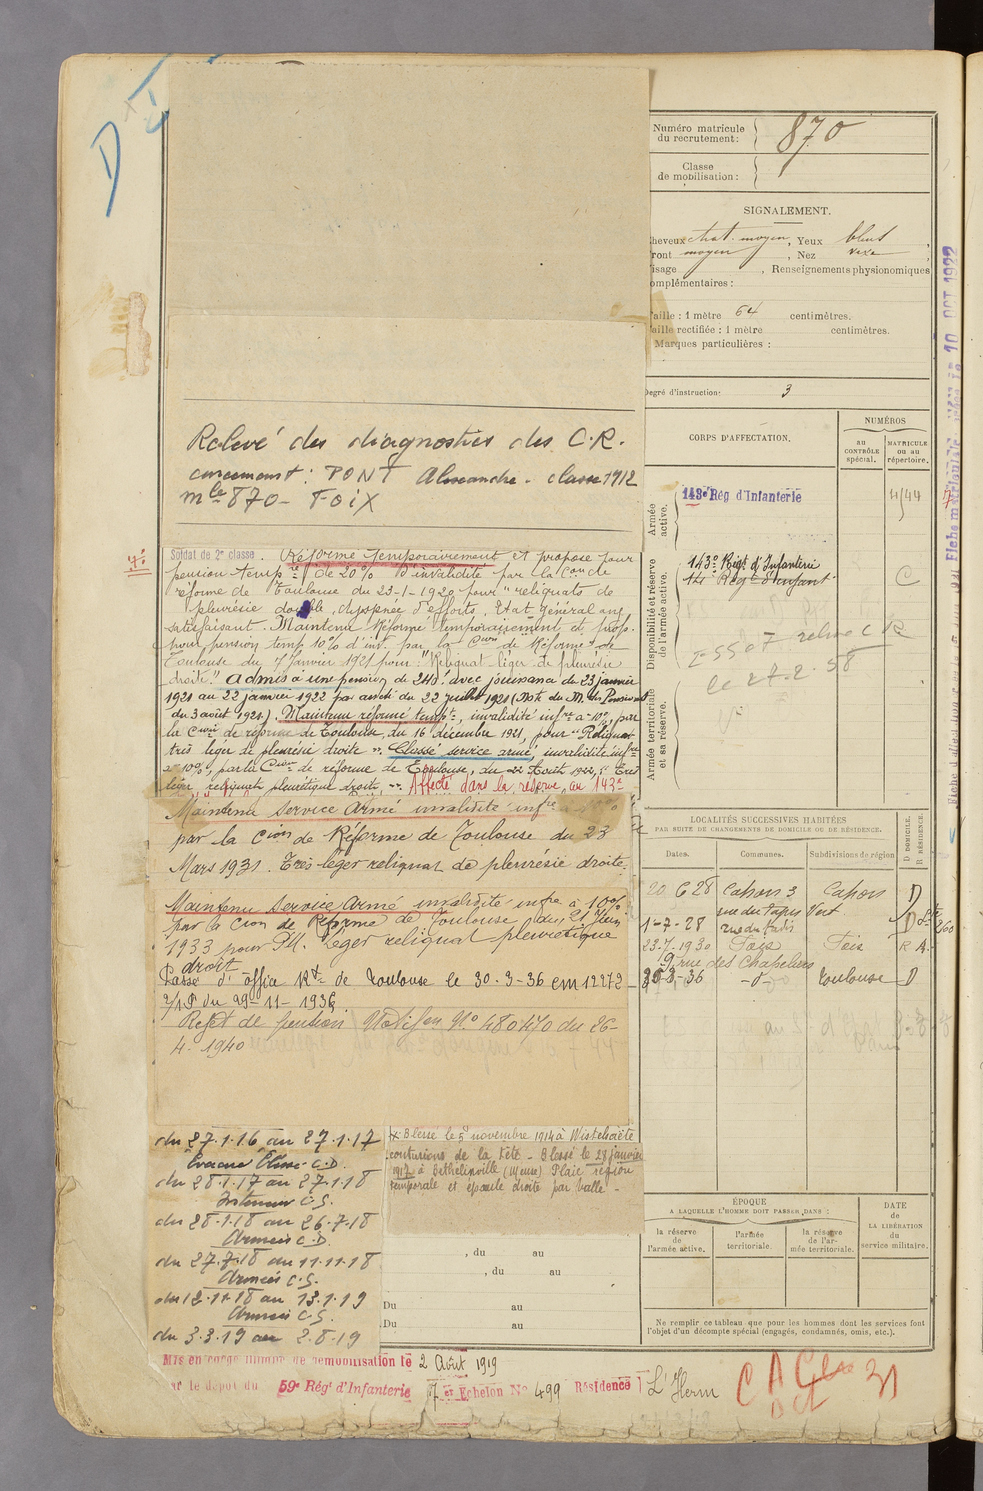 Numéro matricule
du recrutement:
870
Classe
de mobilisation:
SIGNALEMENT.
heveux chat. moyen, Yeux bleus,
ront moyen, Nez
isage , Renseignements physionomiques
omplémentaires:
aille: 1 mètre 64 centimètres.
aille rectifiée: 1 mètre centimètres.
Marques particulières:
Degré d'instruction: 3
Relevé des diagnostics des C.R.
concernant: PONT classe 1912
mle 870 - FOIX
CORPS D'AFFECTATION.
NUMÉROS
au
CONTRÔLE
spécial.
MATRICULE
ou au
répertoire.
Armée
active.
143e Rég d'Infanterie
Disponibilité et réserve
de l'armée active.
143e Régt d'Infanterie
14e Régt d'Infant
C
Armée territoriale
et sa réserve.
le 27.2.58
Soldat de 2e classe. Réformé temporairement et proposé pour
pension tempre de 20% d'invalidité par la Con de
réforme de Toulouse du 23-1-1920 pour "reliquats de
pleurésie double, dyspnée d'efforts, Etat général
satisfaisant. Maintenu Réformé temporairement et prop.
pour pension temp. 10% d'inv. par la Cion de Réforme de
Toulouse du 7 janvier 1921 pour: "Reliquat léger de pleurésie
droite." Admis à une pension de 240f. avec jouissance du 23 janvier
1921 au 22 janvier 1922 par arrêté du 22 juillet 1921 (Note du M. des Pensions
du 3 août 1921). Maintenu réformé tempre, invalidité infre à 10%, par
la Cion de réforme de Toulouse, du 16 décembre 1921, pour "Reliquat
très léger de pleurésie droite". Classé service armé, invalidité infre
à 10%, par la Cion de réforme de Toulouse, du 22 Août 1922, " Très
léger reliquat pleurétique droite". Affecté dans la réserve au 143e
Maintenu Service Armé invalidité infre à 10%
par la Cion de Réforme de Toulouse du 23
Mars 1931. Très léger reliquat de pleurésie droite.
Maintenu Service Armé invalidité infre à 10%
par la Cion de Réforme de Toulouse du 21 Juin
1933 pour léger reliquat pleurétique
droit
Passé d'office Rt de Toulouse le 30-3-36 CM 12272
du 29-11-1936
Rejet de pension Notif on No 480470 du 26-
4-1940
LOCALITÉS SUCCESSIVES HABITÉES
PAR SUITE DE CHANGEMENTS DE DOMICILE OU DE RÉSIDENCE.
D DOMICILE.
R RÉSIDENCE.
Dates. Communes. Subdivisions de région
20 6 28 Cahors 3 Cahors D
rue du Tapis Vert
1-7-28 D
23-7-1930 Foix Foix R
9 rue des Chapeliers
30-3-36 -d- Toulouse D
du 27.1.16 au 27.1.17
C.D.
du 28.1.17 au 27.1.18
Intérieur C.S.
du 28.1.18 au 26.7.18
Armées C.D.
du 27.7.18 au 11.11.18
Armées C.S.
du 12.11.18 au 13.1.19
Armées C.S.
du 3.3.19 au 2.8.19
Blessé le 5 novembre 1914 à Wistchaète
contusions de la tête - Blessé le 28 janvier
1917 à Bethelinville (Meuse) Plaie région
temporale et épaule droite par balle -
, du au
, du au
Du au
Du au
ÉPOQUE
A LAQUELLE L'HOMME DOIT PASSER DANS:
la réserve
de
l'armée active.
l'armée
territoriale.
la réserve
de l'ar-
mée territoriale.
DATE
de
LA LIBÉRATION
du
service militaire.
Ne remplir ce tableau que pour les hommes dont les services font
l'objet d'un décompte spécial (engagés, condamnés, omis, etc.).
Mis en congé illimité de démobilisation le 2 Août 1919
le dépôt du 59e Régt d'Infanterie 7 e Echelon No 499 Résidence L'Herm